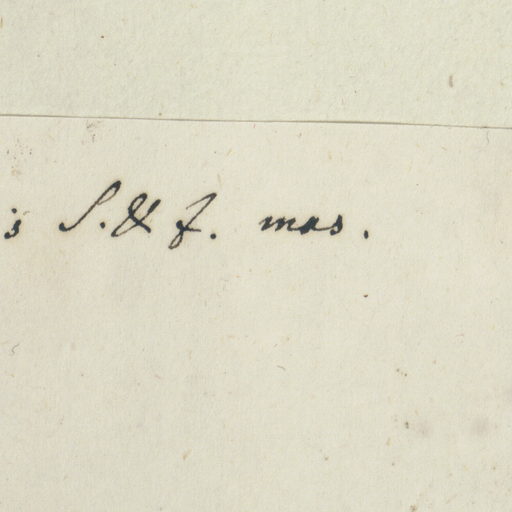 is S. & f. mas.